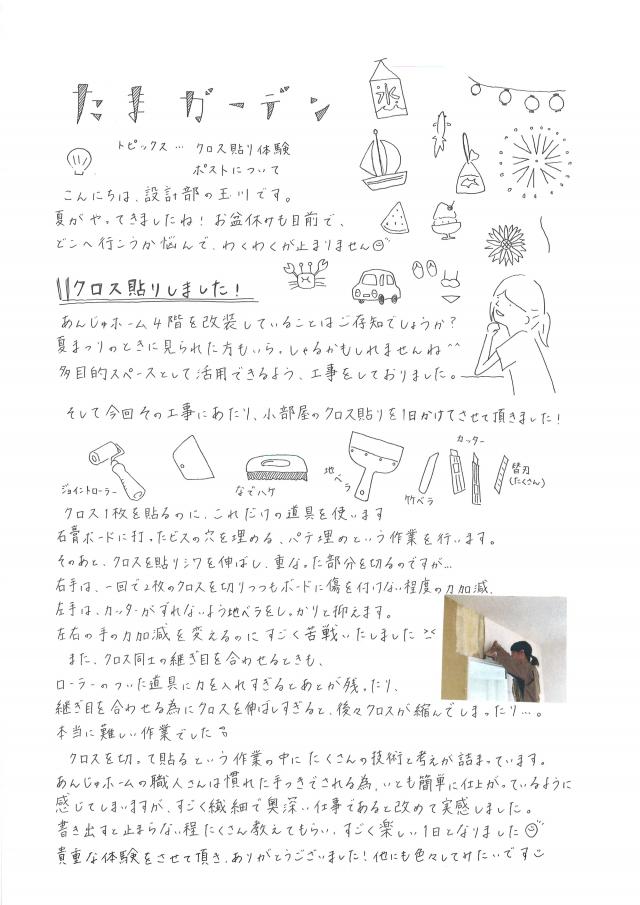 たまガーデン
氷
トピックス… クロス貼り体験
ポストについて
こんにちは、設計部の玉川です。
夏がやってきましたね！お盆休みも目前で、
どこへ行こうか悩んで、わくわくが止まりません
クロス貼りしました！
あんじゅホーム4階を改装していることはご存知でしょうか？
夏まつりのときに見られた方もいらっしゃるかもしれませんね^^
多目的スペースとして活用できるよう、工事をしておりました。
そして今回その工事にあたり、小部屋のクロス貼りを1日かけてさせて頂きました！
ジョイントローラー
なでハケ
地ベラ
竹ベラ
カッター
替刃
(たくさん)
クロス1枚を貼るのに、これだけの道具を使います
石膏ボードに打ったビスの穴を埋める、パテ埋めという作業を行います。
そのあと、クロスを貼りシワを伸ばし、重なった部分を切るのですが…
右手は、一回で2枚のクロスを切りつつもボードに傷を付けない程度の力加減、
左手は、カッターがずれないよう地ベラをしっかりと抑えます。
左右の手の力加減を変えるのにすごく苦戦いたしました
また、クロス同士の継ぎ目を合わせるときも、
ローラーのついた道具に力を入れすぎるとあとが残ったり、
継ぎ目を合わせる為にクロスを伸ばしすぎると、後々クロスが縮んでしまったり…。
本当に難しい作業でした
クロスを切って貼るという作業の中にたくさんの技術と考えが詰まっています。
あんじゅホームの職人さんは慣れた手つきでされる為、いとも簡単に仕上がっているように
感じてしまいますが、すごく繊細で奥深い仕事であると改めて実感しました。
書き出すと止まらない程たくさん教えてもらい、すごく楽しい1日となりました
貴重な体験をさせて頂き、ありがとうございました！他にも色々してみたいです